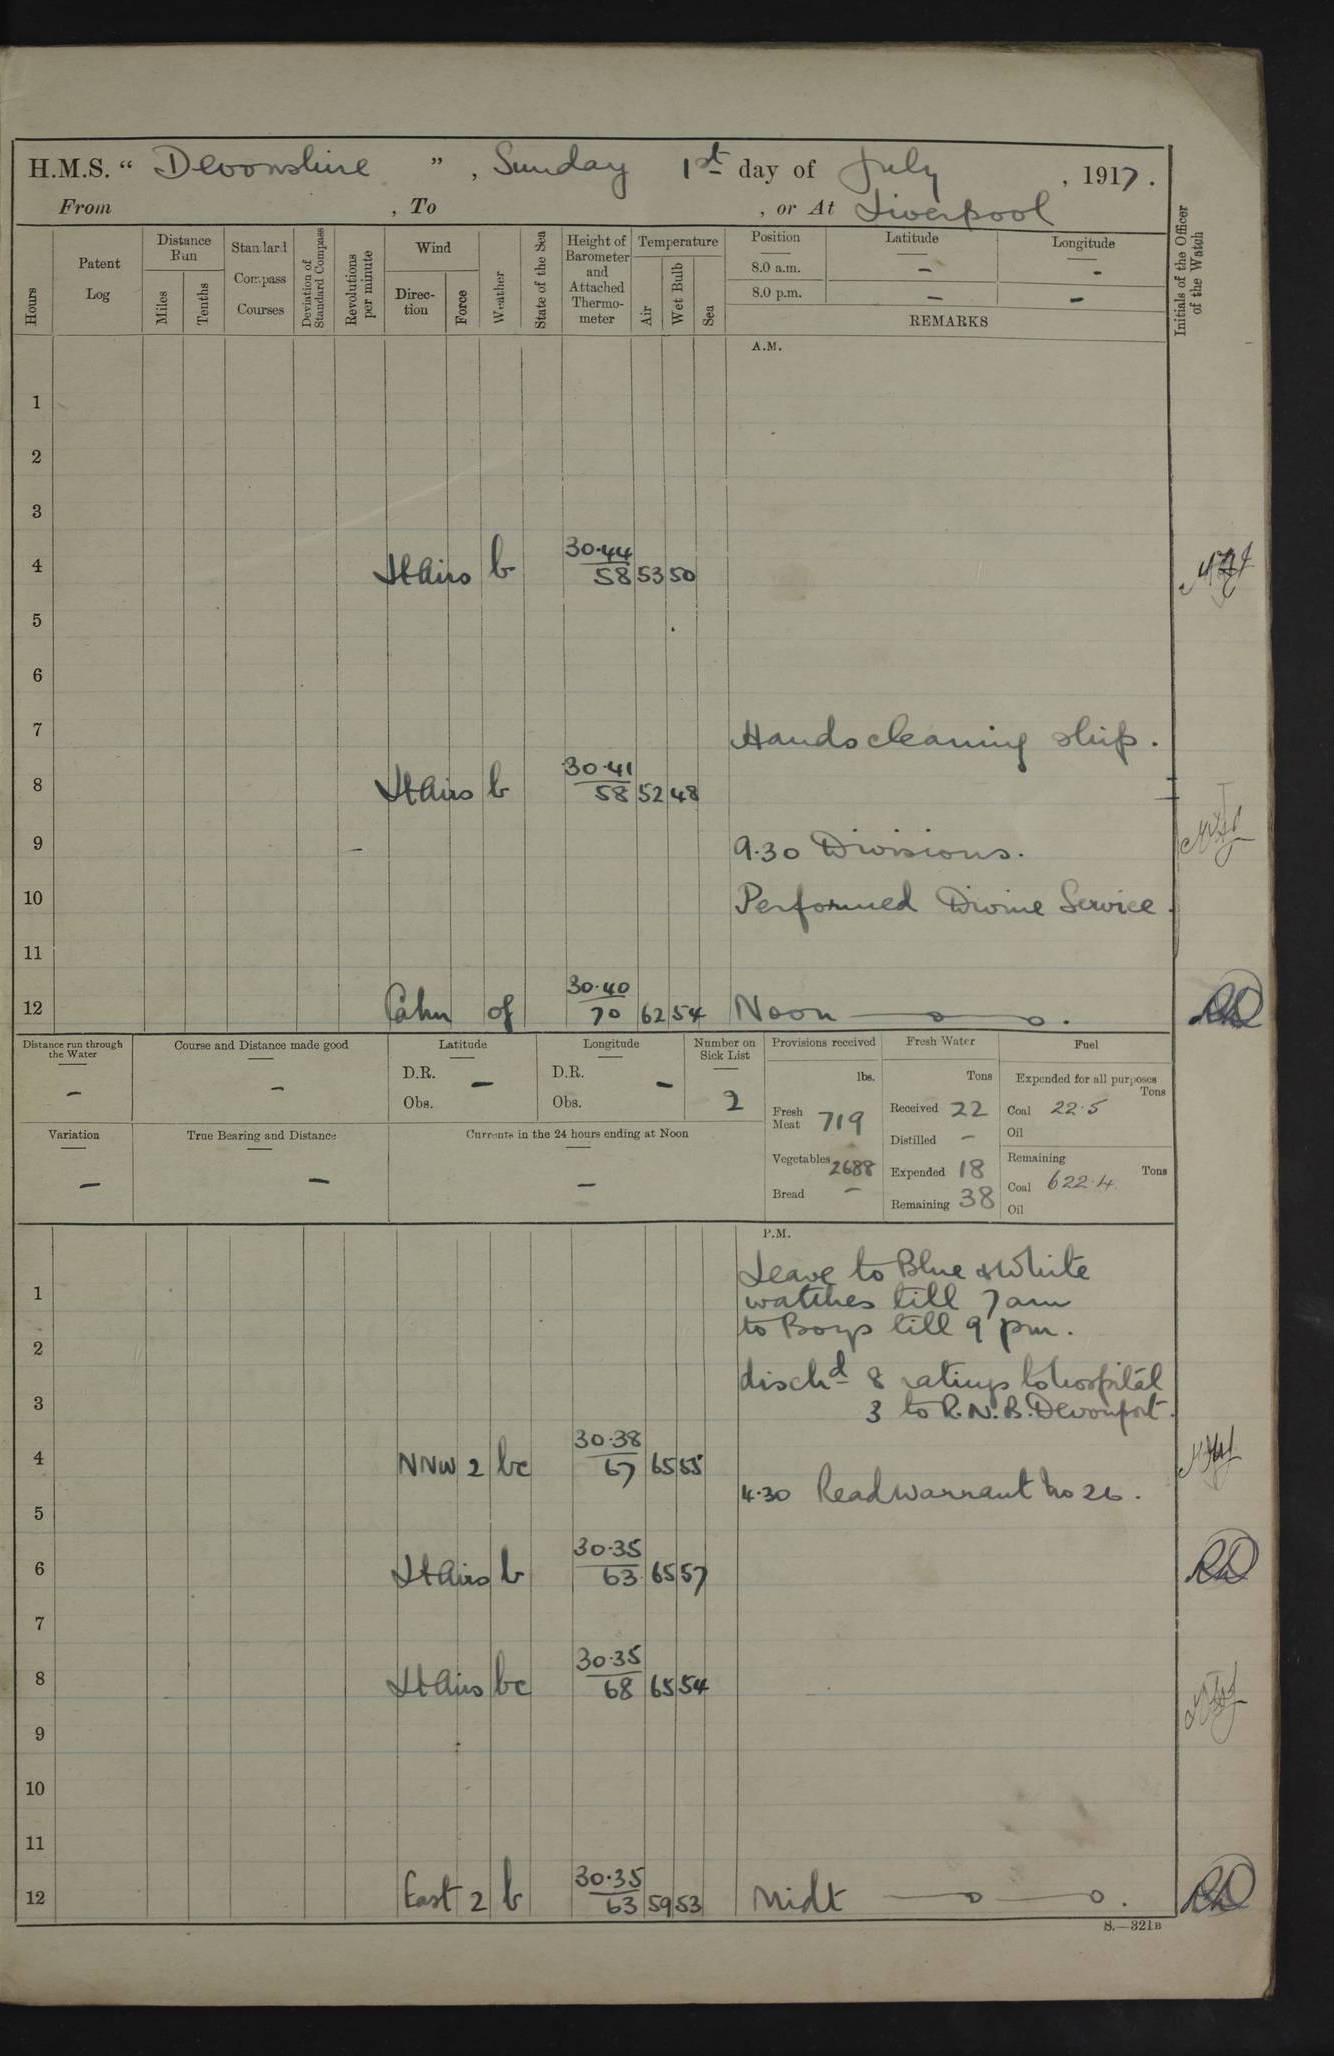 H.M.S. “ Devonshire ” , Sunday 1st day of July , 1917 .
From , To , or At Liverpool
Hours
Patent Log
Distance Run
Miles
Tenths
Standard Compass Courses
Deviation of Standard Compass
Revolutions per minute
Wind
Direction
Force
Weather
State of the Sea
Height of Barometer and Attached Thermometer
Temperature
Air
Wet Bulb
Sea
Position Latitude Longitude
8.0 a.m. - -
8.0 p.m. - -
REMARKS
Initials of the Officer of the Watch
A.M.
1
2
3
4 Lt Airs b 30.44 58 53 50
5
6
7 Hands cleaning ship.
8 Lt Airs b 30.41 58 52 48
9 9.30 Divisions.
10 Performed Divine Service.
11
12 Calm of 30.40 70 62 54 Noon
Distance run through the Water -
Course and Distance made good -
Latitude D.R. - Obs.
Longitude D.R. - Obs.
Number on Sick List 2
Variation -
True Bearing and Distance -
Currents in the 24 hours ending at Noon -
Provisions received
lbs.
Fresh Meat 719
Vegetables 2688
Bread -
Fresh Water
Tons
Received 22
Distilled -
Expended 18
Remaining 38
Fuel
Expended for all purposes
Tons
Coal 22.5
Oil
Remaining
Tons
Coal 622.4
Oil
P.M.
Leave to Blue & White
1 watches till 7 am
2 to Boys till 9 pm.
disch'd 8 ratings to hospital
3 3 to R.N.B. Devonport.
4 NNW 2 bc 30.38 67 65 55
4.30 Read warrant No 26.
5
6 Lt Airs b 30.35 63 65 57
7
8 Lt Airs bc 30.35 68 65 54
9
10
11
12 East 2 b 30.35 63 59 53 Midt
S.—321B